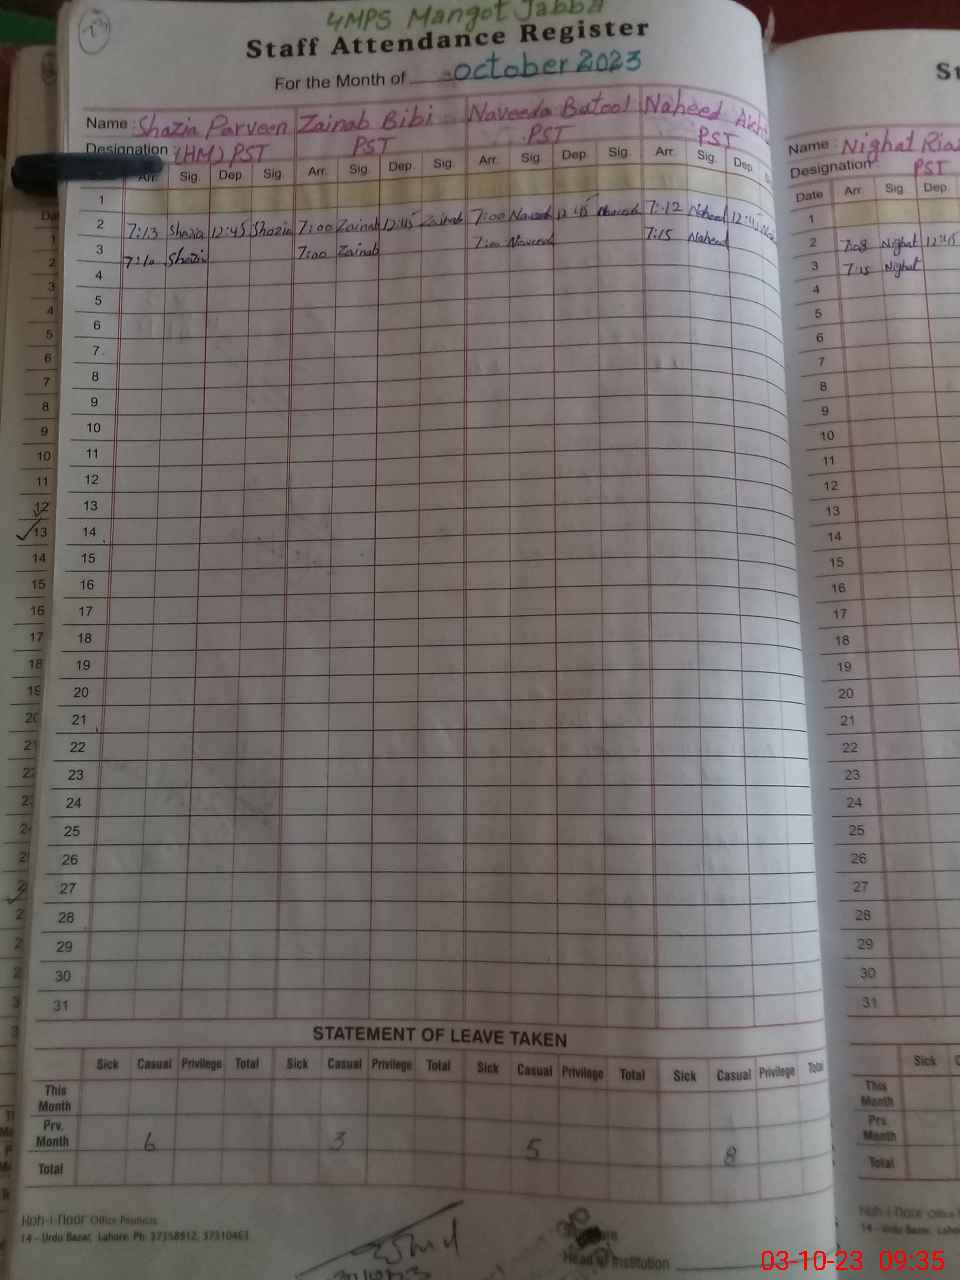 4MPS Mangot Jabba
Staff Attendance Register
For the Month of October 2023
Name : Shazia Parveen Zainab Bibi Naveeda Batool Naheed
Designation : (HM) PST PST PST PST
Arr. Sig. Dep. Sig. Arr. Sig. Dep. Sig. Arr. Sig. Dep. Sig. Arr. Sig. Dep.
1
2 7:13 Shazia 12:45 Shazia 7:00 Zainab 12:45 Zainab 7:00 Naveed 12:45 Naveed 7:12 Naheed 12:45
3 7:10 Shazia 7:00 Zainab 7:00 Naveed 7:15 Naheed
4
5
6
7
8
9
10
11
12
13
14
15
16
17
18
19
20
21
22
23
24
25
26
27
28
29
30
31
STATEMENT OF LEAVE TAKEN
Sick Casual Privilege Total Sick Casual Privilege Total Sick Casual Privilege Total Sick Casual Privilege Total
This Month
Prv. Month 6 3 5 8
Total
Koh-i-Noor Office Products
14 - Urdu Bazar, Lahore. Ph: 37358912, 37310461
Head of Institution
Name : Nighat
Designation : PST
Date Arr. Sig Dep.
1
2 7:08 Nighat 12:45
3 7:15 Nighat
4
5
6
7
8
9
10
11
12
13
14
15
16
17
18
19
20
21
22
23
24
25
26
27
28
29
30
31
Sick
This Month
Prv. Month
Total
03-10-23 09:35